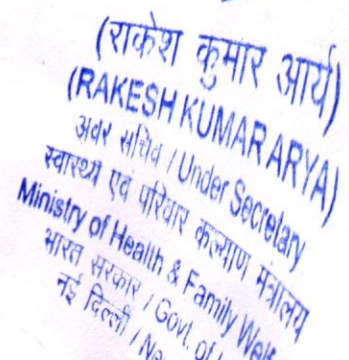 (राकेश कुमार आर्य)
(RAKESH KUMAR ARYA)
अवर सचिव / Under Secretary
स्वास्थ्य एवं परिवार कल्याण मंत्रालय
Ministry of Health & Family Welf
भारत सरकार / Govt. of
नई दिल्ली / Ne